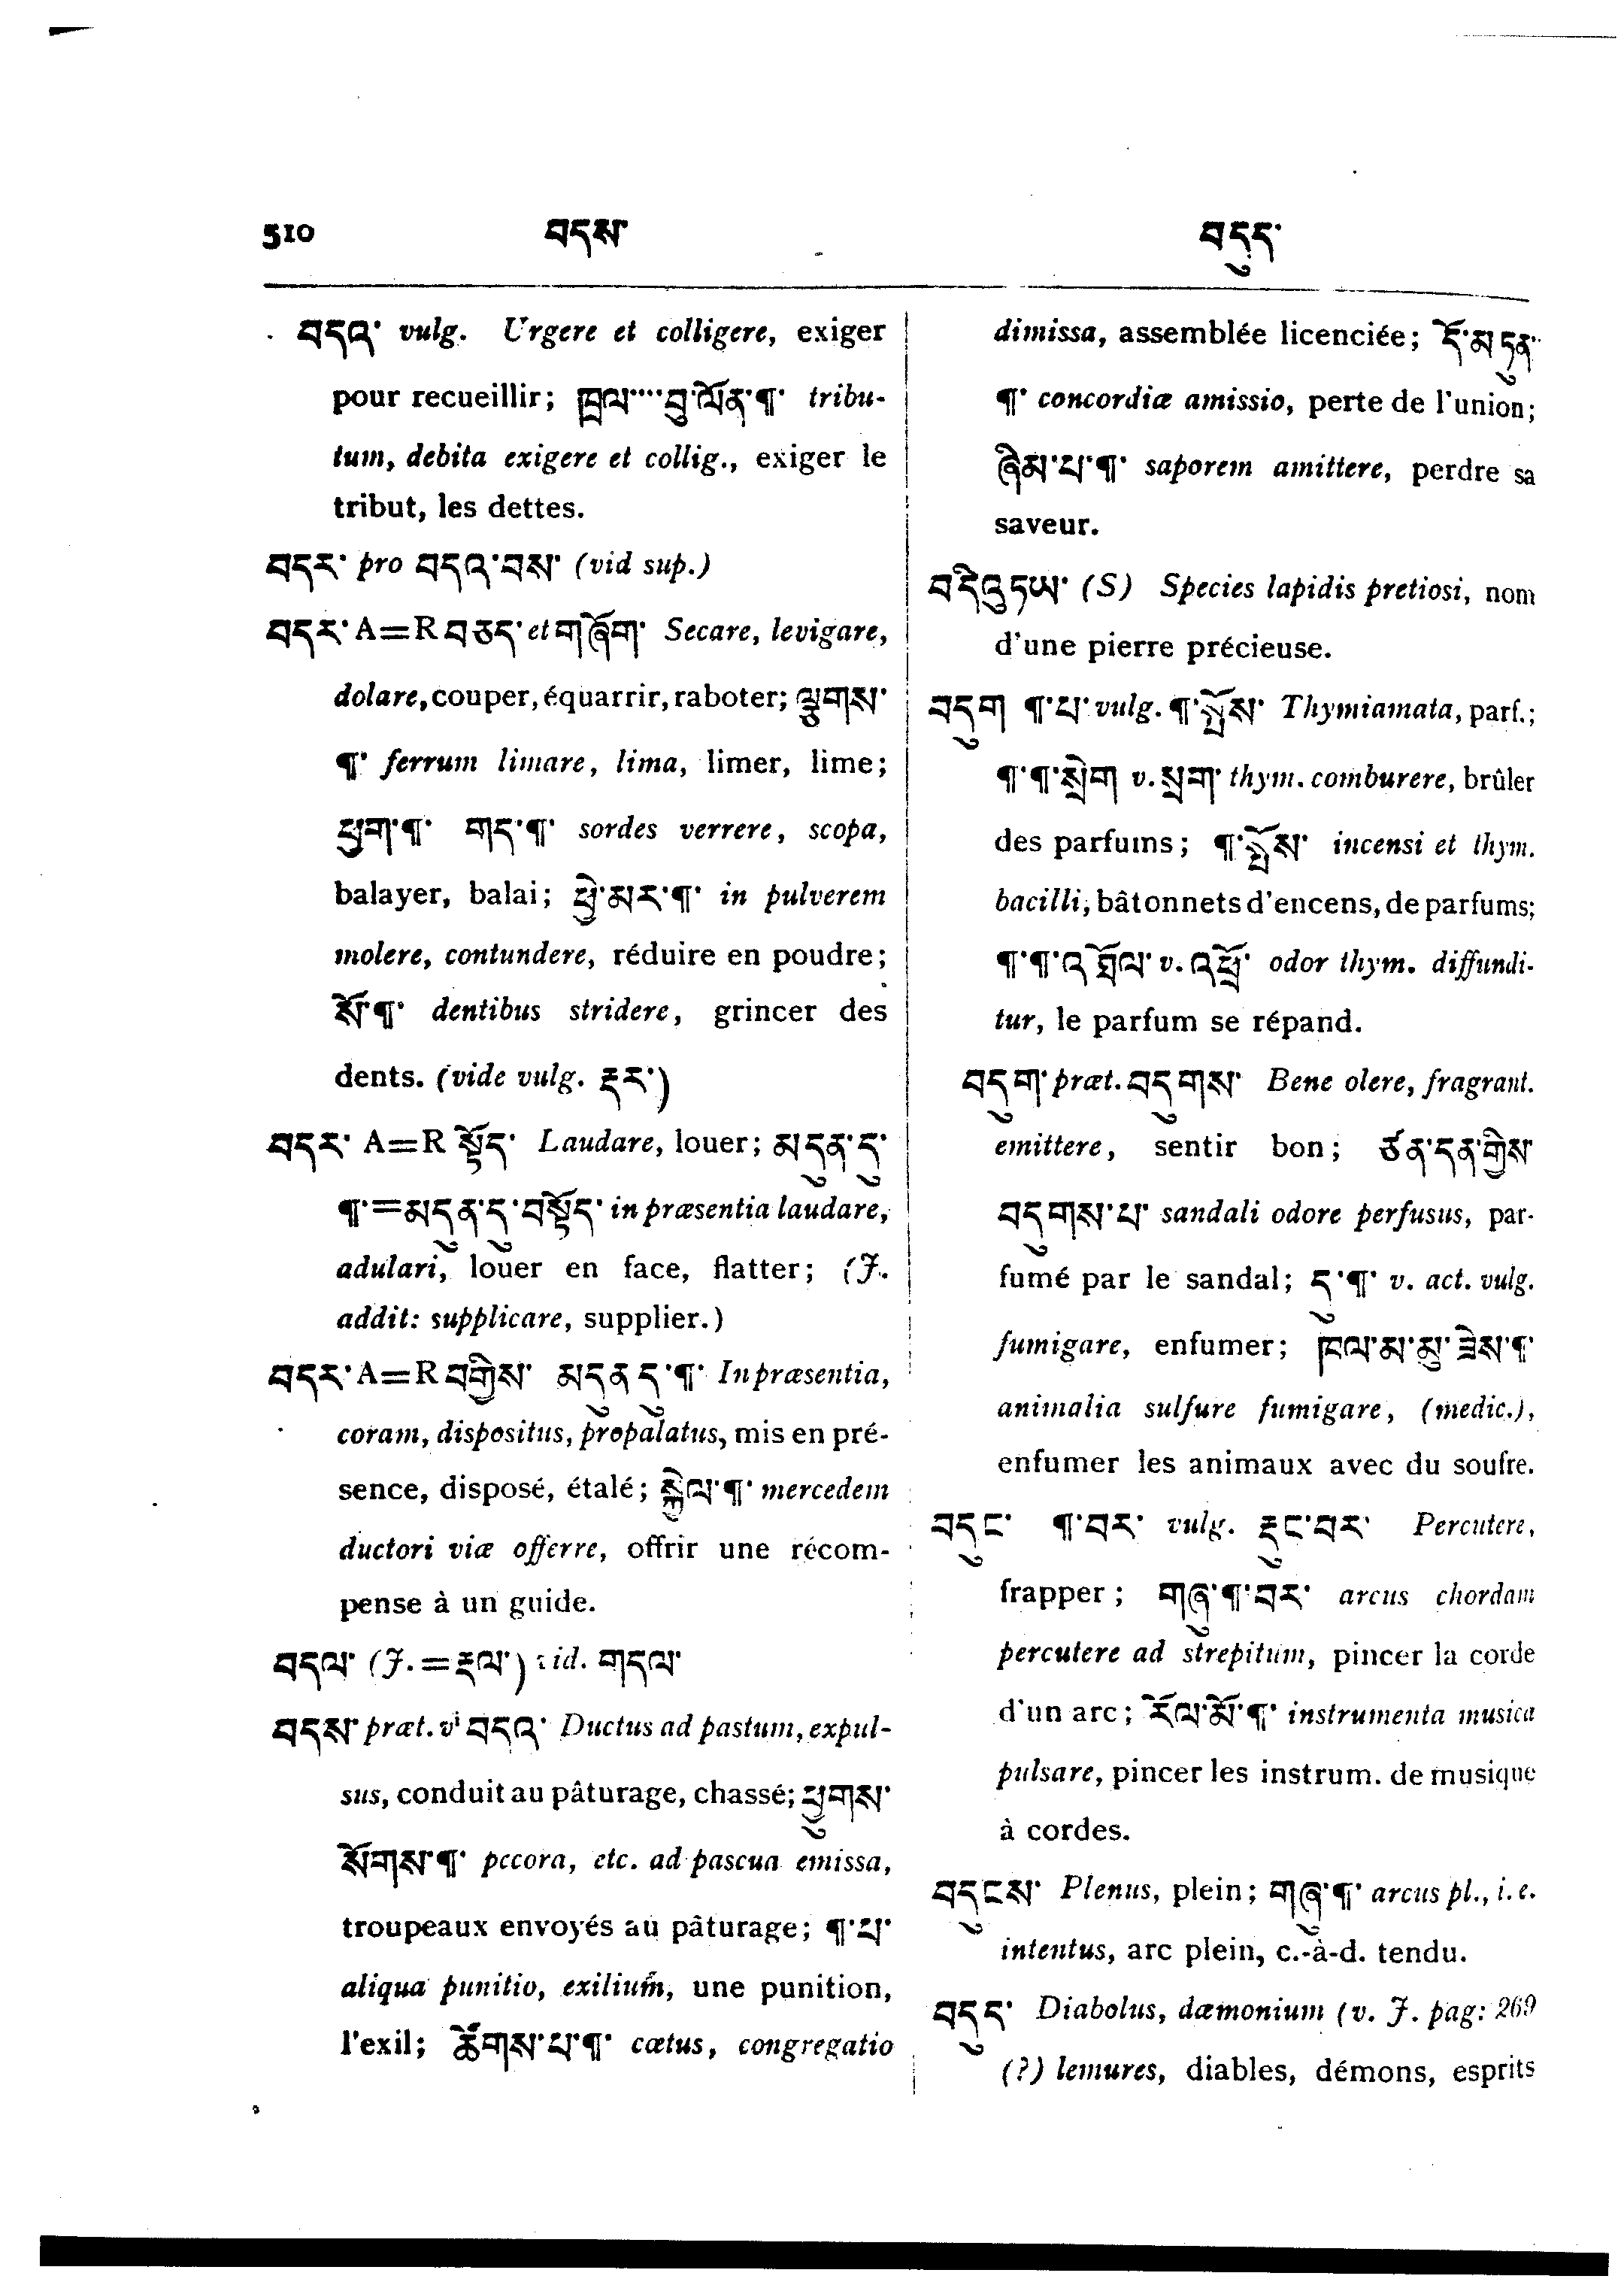 510 བདས་ བདུད་
བདའ་ vulg. Urgere et colligere, exiger
pour recueillir; ཁྲལ་་་་བུ་ལོན་¶་ tribu-
tum, debita exigere et collig., exiger le
tribut, les dettes.
བདར་ pro བདའ་བས་ (vid sup.)
བདར་ A=R བཅད་ et གཞོག་ Secare, levigare,
dolare, couper, équarrir, raboter; ལྕགས་
¶་ ferrum limare, lima, limer, lime;
ཕྱག་¶་ གད་¶་ sordes verrere, scopa,
balayer, balai; ཕྱེ་མར་¶་ in pulverem
molere, contundere, réduire en poudre;
སོ་¶་ dentibus stridere, grincer des
dents. (vide vulg. རྡར་)
བདར་ A=R སྟོད་ Laudare, louer; མདུན་དུ་
¶་=མདུན་དུ་བསྟོད་ in præsentia laudare,
adulari, louer en face, flatter; (J.
addit: supplicare, supplier.)
བདར་ A=R བགྱིས་ མདུན་དུ་¶་ In præsentia,
coram, dispositus, propalatus, mis en pré-
sence, disposé, étalé; སྐྱེལ་¶་ mercedem
ductori viæ offerre, offrir une récom-
pense à un guide.
བདལ་ (J. = རྡལ་) vid. གདལ་
བདས་ præt. vⁱ བདའ་ Ductus ad pastum, expul-
sus, conduit au pâturage, chassé; ཕྱུགས་
སོགས་¶་ pecora, etc. ad pascua emissa,
troupeaux envoyés au pâturage; ¶་པ་
aliqua punitio, exilium, une punition,
l'exil; ཚོགས་པ་¶་ cœtus, congregatio
dimissa, assemblée licenciée; ངོ་མཐུན་
¶་ concordiæ amissio, perte de l'union;
ཞིམ་པ་¶་ saporem amittere, perdre sa
saveur.
བདིའུཏཡ་ (S) Species lapidis pretiosi, nom
d'une pierre précieuse.
བདུག ¶་པ་ vulg. ¶་སྤོས་ Thymiamata, parf.;
¶་¶་སྲེག v. སྲག་ thym. comburere, brûler
des parfums; ¶་སྤོས་ incensi et thym.
bacilli, bâtonnets d'encens, de parfums;
¶་¶་འཐོལ་ v. འཕྲོ་ odor thym. diffundi-
tur, le parfum se répand.
བདུག་ præt. བདུགས་ Bene olere, fragrant.
emittere, sentir bon; ཙན་དན་གྱིས་
བདུགས་པ་ sandali odore perfusus, par-
fumé par le sandal; དུ་¶་ v. act. vulg.
fumigare, enfumer; ཁལ་མ་མུ་ཟེས་¶་
animalia sulfure fumigare, (medic.),
enfumer les animaux avec du soufre.
བདུང་ ¶་བར་ vulg. རྡུང་བར་ Percutere,
frapper; གཞུ་¶་བར་ arcus chordam
percutere ad strepitum, pincer la corde
d'un arc; རོལ་མོ་¶་ instrumenta musica
pulsare, pincer les instrum. de musique
à cordes.
བདུངས་ Plenus, plein; གཞུ་¶་ arcus pl., i. e.
intentus, arc plein, c.-à-d. tendu.
བདུད་ Diabolus, dæmonium (v. J. pag: 269
(?) lemures, diables, démons, esprits